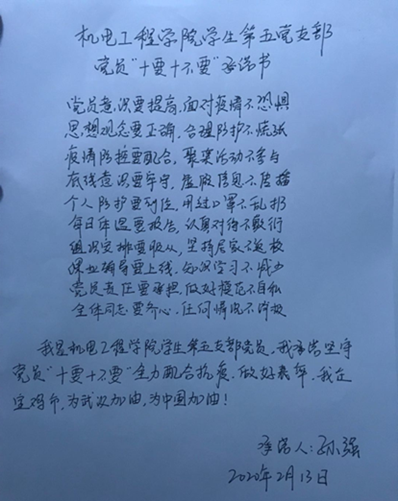 机电工程学院学生第五党支部
党员“十要十不要”承诺书
党员意识要提高，面对疫情不恐惧
思想观念要正确，合理防护不慌张
疫情防控要配合，聚集活动不参与
底线意识要牢守，虚假信息不传播
个人防护要到位，用过口罩不乱扔
每日体温要报告，认真对待不敷衍
组织安排要服从，坚持居家不返校
课业辅导要上线，知识学习不减力
党员责任要承担，做好模范不自私
全体同志要齐心，任何情况不消极
我是机电工程学院学生第五支部党员，我承诺坚守
党员“十要十不要”全力配合抗疫，做好表率，我在
，为武汉加油，为中国加油！
承诺人：孙强
2020年2月13日